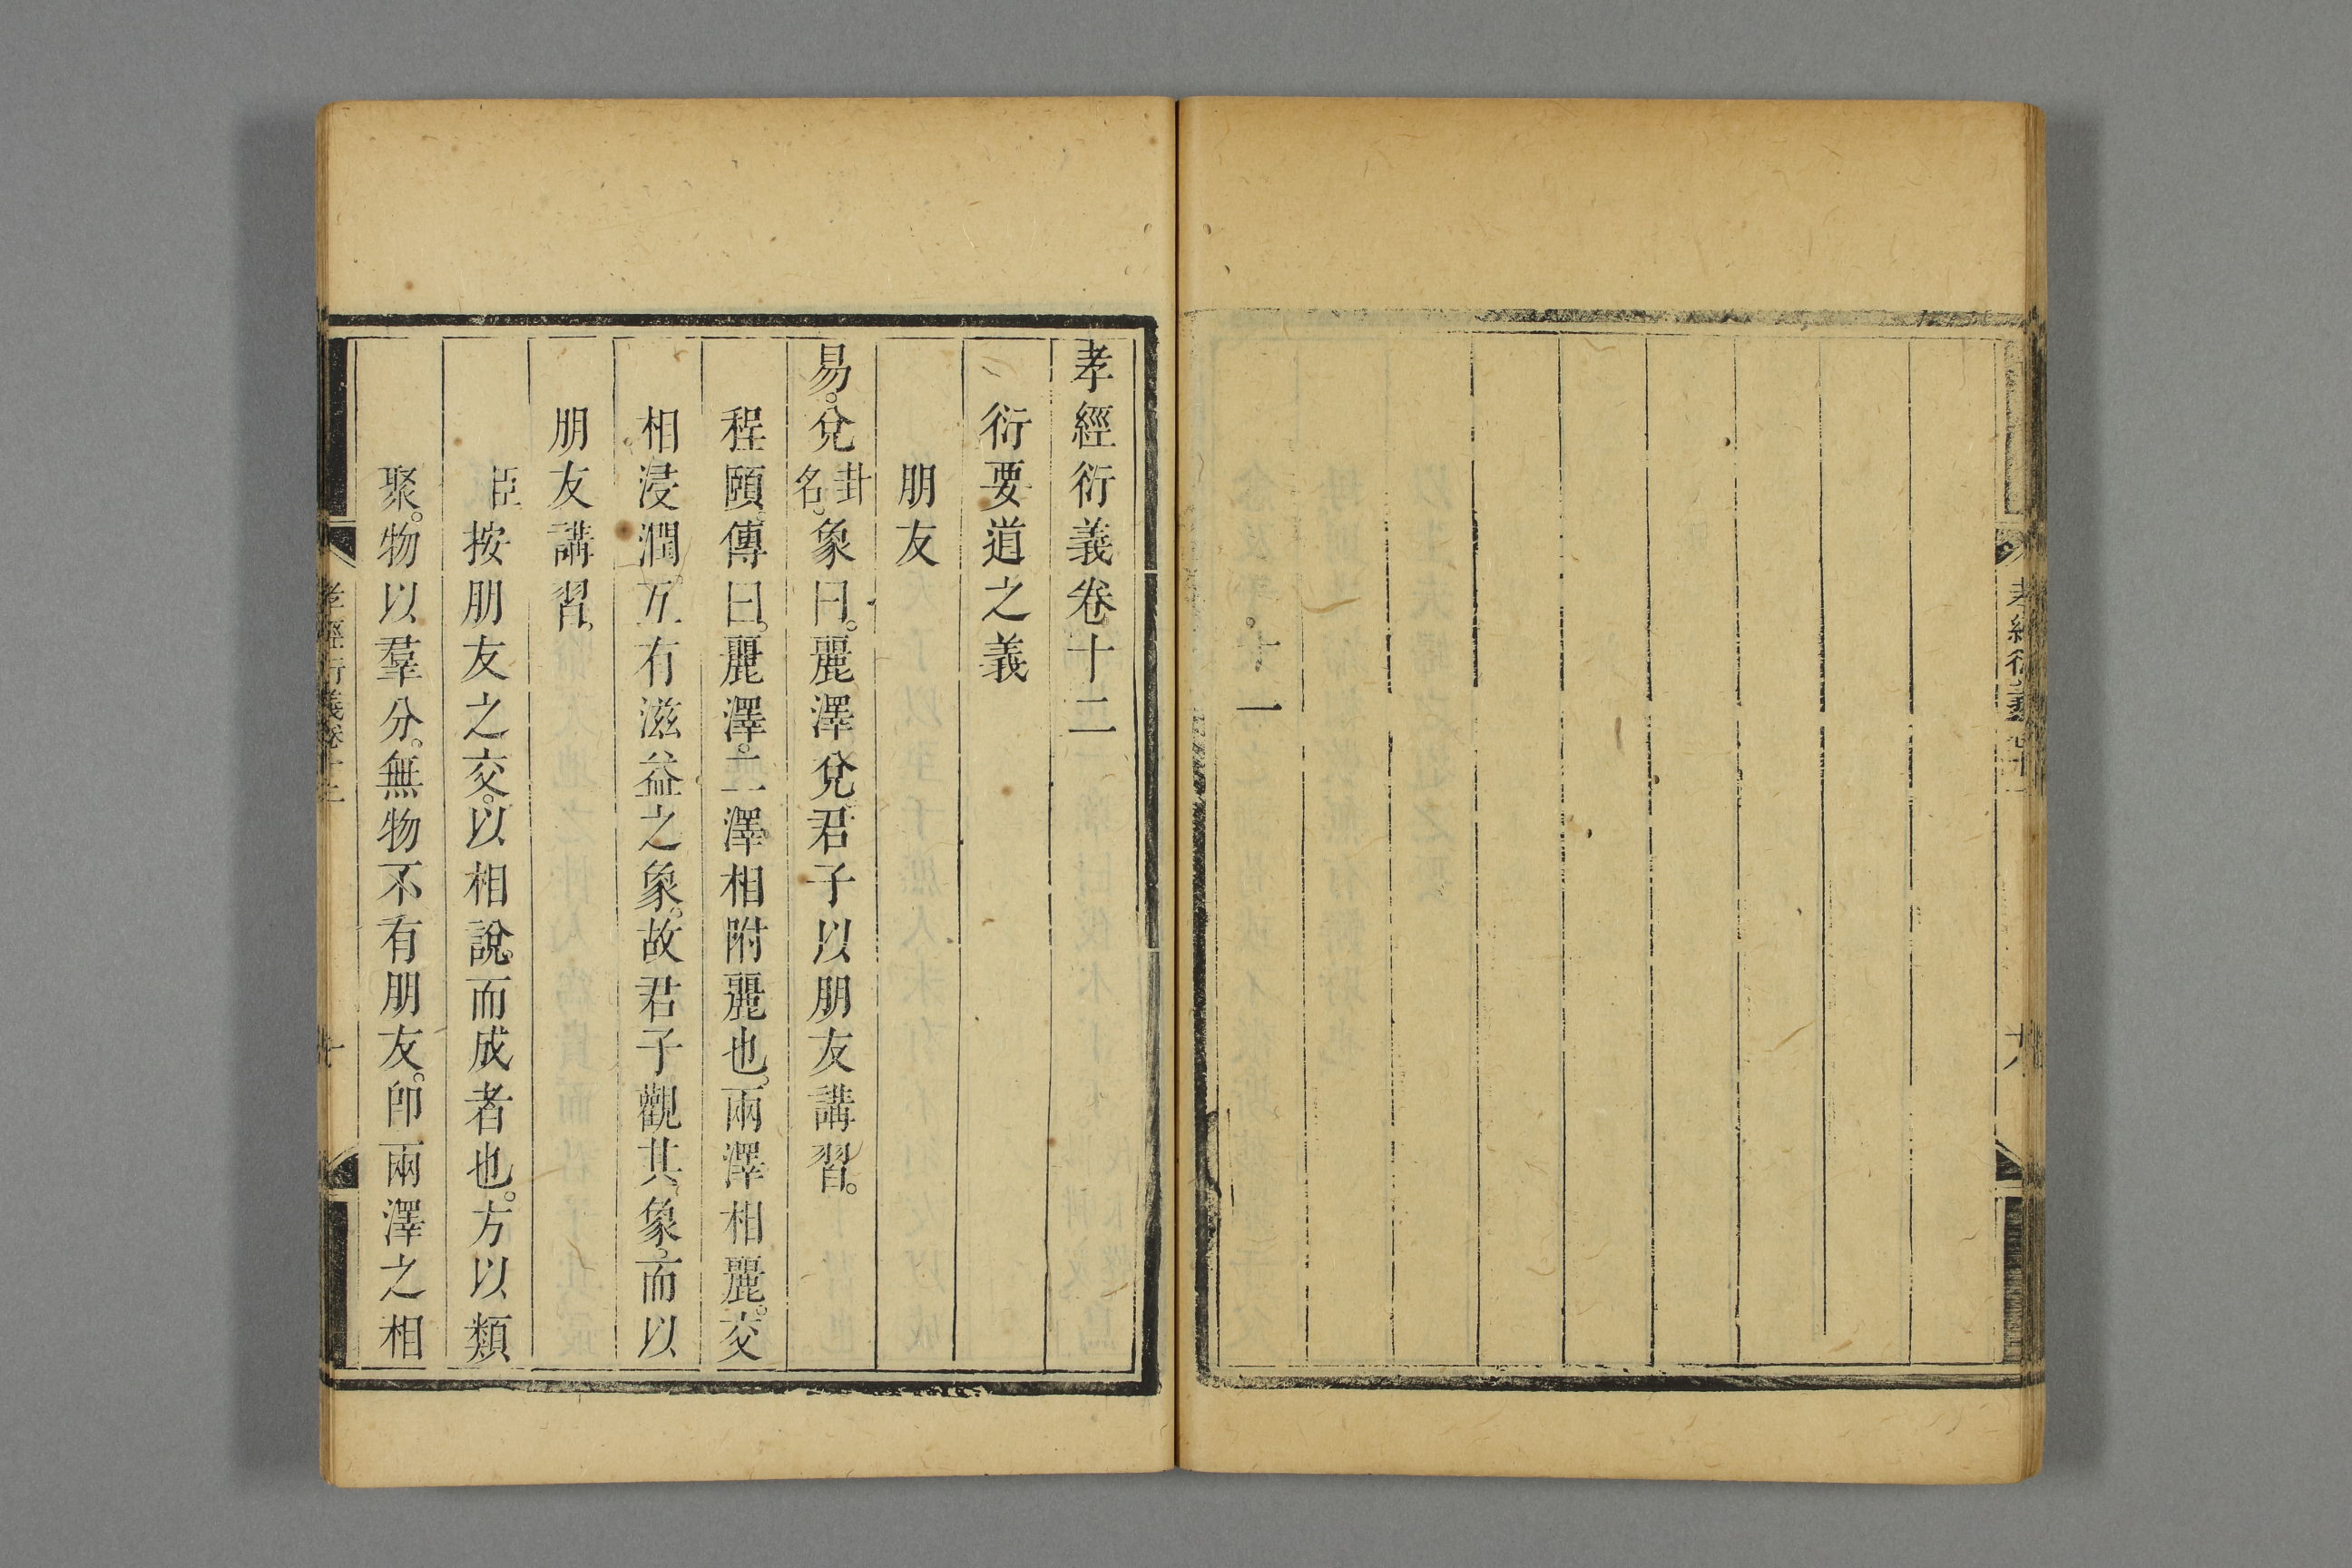 十一
孝經衍義卷十二
衍要道之義
朋友
易。兌卦名、象曰。麗澤兌君子以朋友講習。
程頤傳曰。麗澤。二澤相附麗也。兩澤相麗。交
相浸潤。互有滋益之象。故君子觀其象。而以
朋友講習。
臣按朋友之交。以相說。而成者也。方以類
聚。物以羣分。無物不有朋友。卽兩澤之相
孝經衍義卷十二